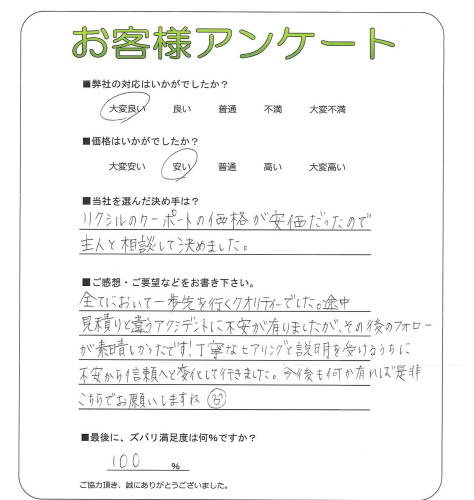 お客様アンケート
■弊社の対応はいかがでしたか？
大変良い 良い 普通 不満 大変不満
■価格はいかがでしたか？
大変安い 安い 普通 高い 大変高い
■当社を選んだ決め手は？
リクシルのカーポートの価格が安価だったので
主人と相談して決めました。
■ご感想・ご要望などをお書き下さい。
全てにおいて一歩先を行くクオリティーでした。途中
見積りと違うアクシデントに不安が有りましたが、その後のフォロー
が素晴しかったです！丁寧なヒアリングと説明を受けるうちに
不安から信頼へと変化して行きました。今後も何か有れば是非
こちらでお願いしますね
■最後に、ズバリ満足度は何%ですか？
100 %
ご協力頂き、誠にありがとうございました。